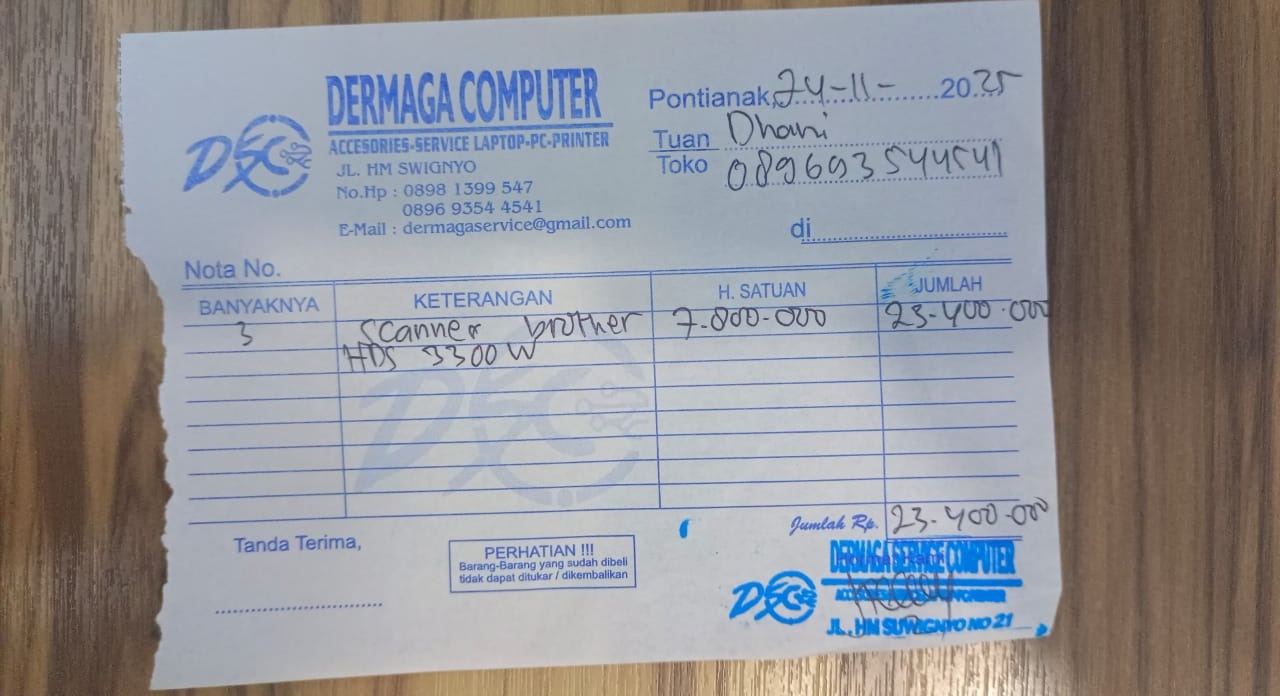 DERMAGA COMPUTER
ACCESORIES-SERVICE LAPTOP-PC-PRINTER
JL. HM SWIGNYO
No.Hp : 0898 1399 547
0896 9354 4541
E-Mail : dermagaservice@gmail.com
DSC
Pontianak, 24-11- 2025
Tuan Dhani
Toko 089693544541
di
Nota No.
BANYAKNYA KETERANGAN H. SATUAN JUMLAH
3 Scanner brother 7.800.000 23.400.000
HDS 3300 W
Jumlah Rp. 23.400.000
Tanda Terima,
PERHATIAN !!!
Barang-Barang yang sudah dibeli
tidak dapat ditukar / dikembalikan
DERMAGA SERVICE COMPUTER
DSC
JL. HM SUWIGNYO NO 21